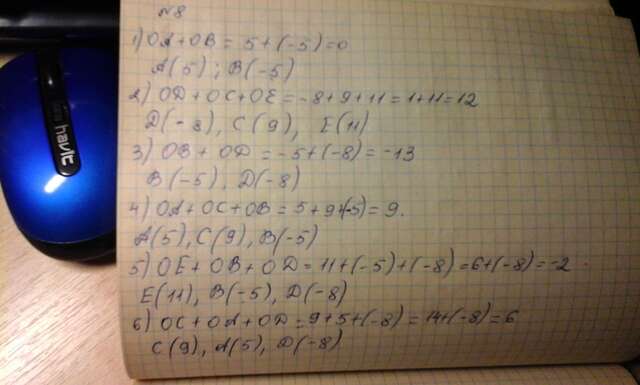 N8
1) OA+OB = 5+(-5)=0
A(5); B(-5)
2) OD+OC+OE=-8+9+11=1+11=12
D(-8), C(9), E(11)
3) OB+OD=-5+(-8)=-13
B(-5), D(-8)
4) OA+OC+OB=5+9+(-5)=9.
A(5), C(9), B(-5)
5) OE+OB+OD=11+(-5)+(-8)=6+(-8)=-2
E(11), B(-5), D(-8)
6) OC+OA+OD=9+5+(-8)=14+(-8)=6
C(9), A(5), D(-8)
havit